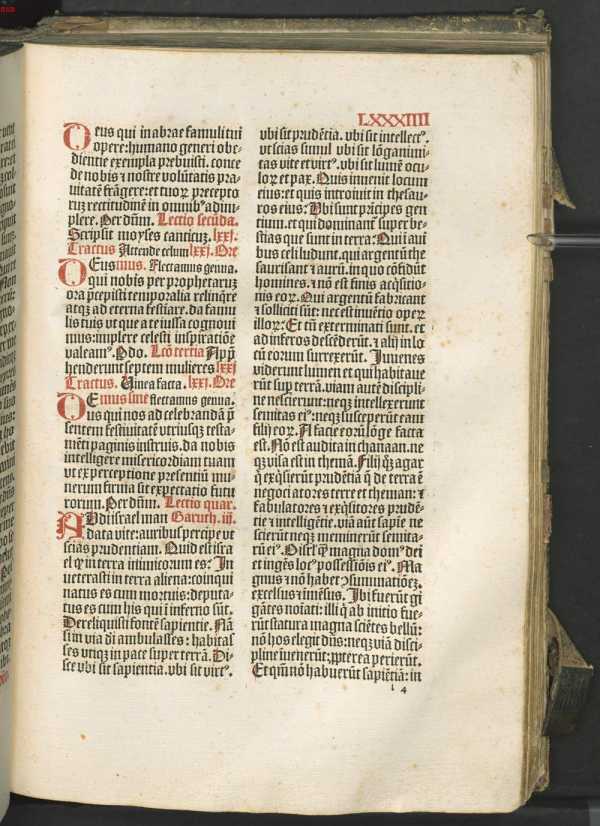 LXXXIIII
Deus qui in abrae famuli tui
opere: humano generi obe-
dientie exempla prebuisti. conce
de nobis ⁊ nostre volūtatis pra-
uitatē frāgere: et tuoꝝ precepto
ruꝫ rectitudinē in omnibꝰ adim-
plere. Per dūm. Lectio secūda.
Scripsit moyses canticuꝫ. lxxj.
Tractus Attende celum lxxj. Ore
OEusmus. Flectamus genua.
qui nobis per prophetaruꝫ
ora p̄cepisti temporalia relinq̄re
atqꝫ ad eterna festiare. da famu
lis tuis vt que a te iussa cognoui
mus: implere celesti inspiratiōe
valeamꝰ. P do. Lcō tertia App̄
henderunt septem mulieres lxxj
Tractus. Uinea facta. lxxj. Ore
DEmus sine flectamus genua.
us qui nos ad celebrandā p̄
sentem festiuitatē vtriusqꝫ testa-
mēti paginis instruis. da nobis
intelligere misericordiam tuam
vt ex perceptione presentiū mu-
nerum firma sit expectatio futu
rorum. Per dūm. Lectio quar.
Audi israel man Baruch. iij.
data vite: auribus percipe vt
scias prudentiam. Quid est isra
el ꝙ in terra inimicorum es: In
ueterasti in terra aliena: coinqui
natus es cum mortuis: deputa-
tus es cum his qui i inferno sūt.
Dereliquisti fontē sapientie. Nā
si in via di ambulasses: habitas
ses vtiqꝫ in pace super terrā. Di-
sce vbi sit sapientia. vbi sit virtꝰ.
vbi sit prudētia. vbi sit intellectꝰ.
vt scias simul vbi sit lōganimi-
tas vite et virtꝰ. vbi sit lumē ocu
lorꝫ et pax. Quis inuenit locum
eius: et quis introiuit in thesau-
ros eius: Ubi sunt pricipes gen
tium. et qui dominant super be-
stias que sunt in terra: Qui aui
bus celi ludunt. qui argentū the
saurisant ⁊ aurū. in quo cōfidūt
homines. ⁊ nō est finis acqsitio-
nis eoꝝ. Qui argentū fabricant
⁊ solliciti sūt: nec est inuētio opeꝝ
illoꝝ: Et tn̄ exterminati sunt. et
ad inferos descēderūt. ⁊ alij in lo
cū eorum surrexerūt. Iuuenes
viderunt lumen et qui habitaue
rūt sup terrā. viam autē discipli-
ne nescierunt: neqꝫ intellexerunt
semitas eiꝰ: neqꝫ susceperūt eam
filij eoꝝ. A facie eoꝝ lōge facta
est. Nō est audita in chanaan. ne
qꝫ visa est in themā. Filij qꝫ agar
q̄ exqsierūt prudētia q̄ de terra ē
negociatores terre et theman: ⁊
fabulatores ⁊ exqsitores prudē-
tie ⁊ intelligētie. viā aūt sapiē ne
scierūt neqꝫ meminerūt semita-
rū eiꝰ. O isrl' ꝙ magna domꝰ dei
et ingēs locꝰ possessiōis eiꝰ. Ma
gnus ⁊ nō habet ꝯsummatiōeꝫ.
excelsus ⁊ imēsus. Ibi fuerūt gi
gātes noiati: illi q̄ ab initio fue-
rūt statura magna sciētes bellū:
nō hos elegit dn̄s: neqꝫ viā disci-
pline inenerūt: ꝓpterea perierūt.
Et qm̄ nō habuerūt sapiētiā: in
l 4